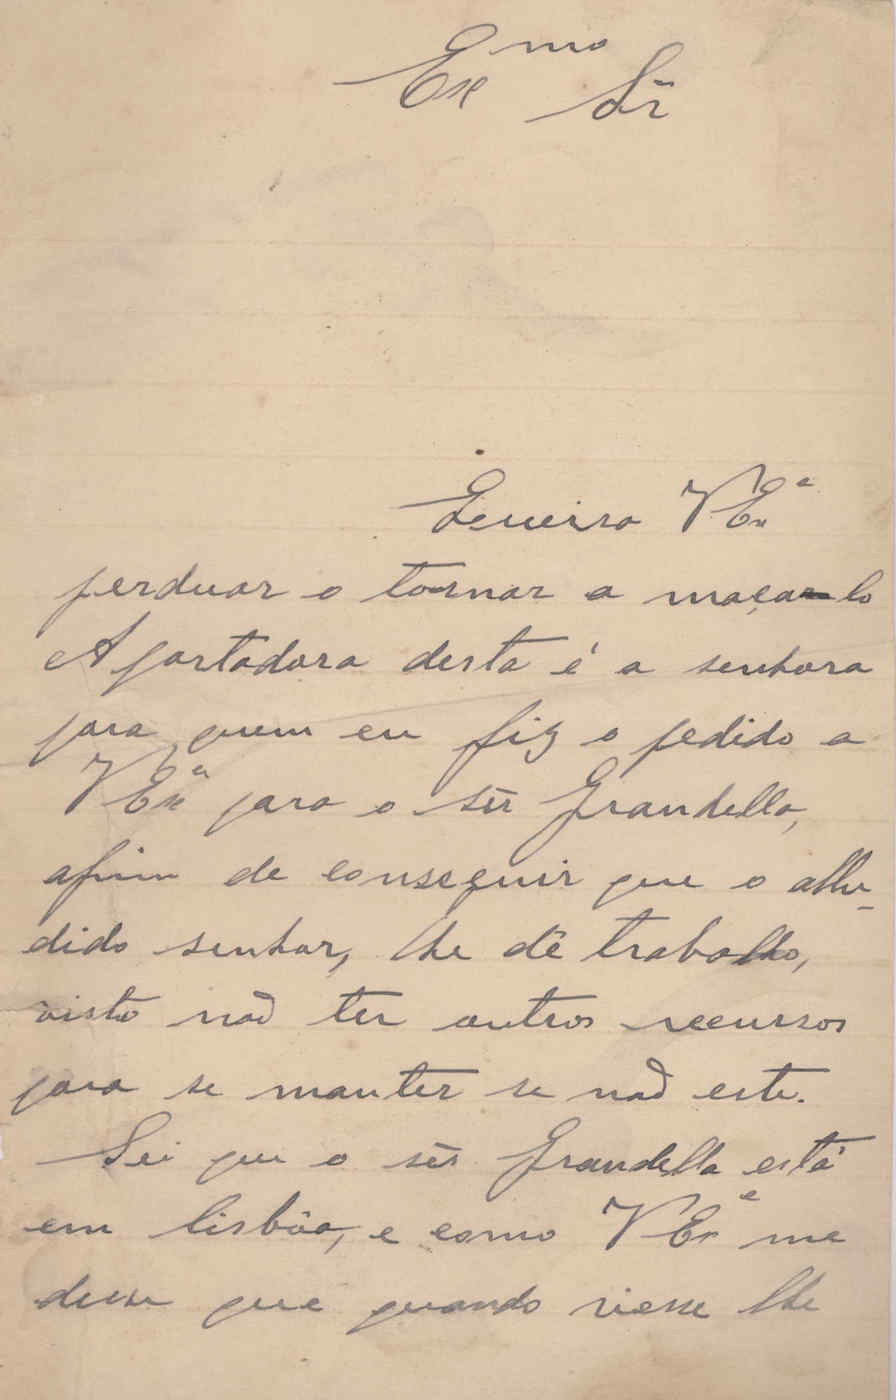 Ex.mo Sr.
Queira V Ex.a
perduar o tornar a maça-lo
A portadora desta é a senhora
para quem eu fiz o pedido a
V Ex.a para o sr Grandella,
afim de conseguir que o allu-
dido senhor, lhe dê trabalho,
visto não ter outros recursos
para se manter se não este.
Sei que o sr. Grandella está
em lisbôa, e como V Ex.a me
disse que quando viesse lhe